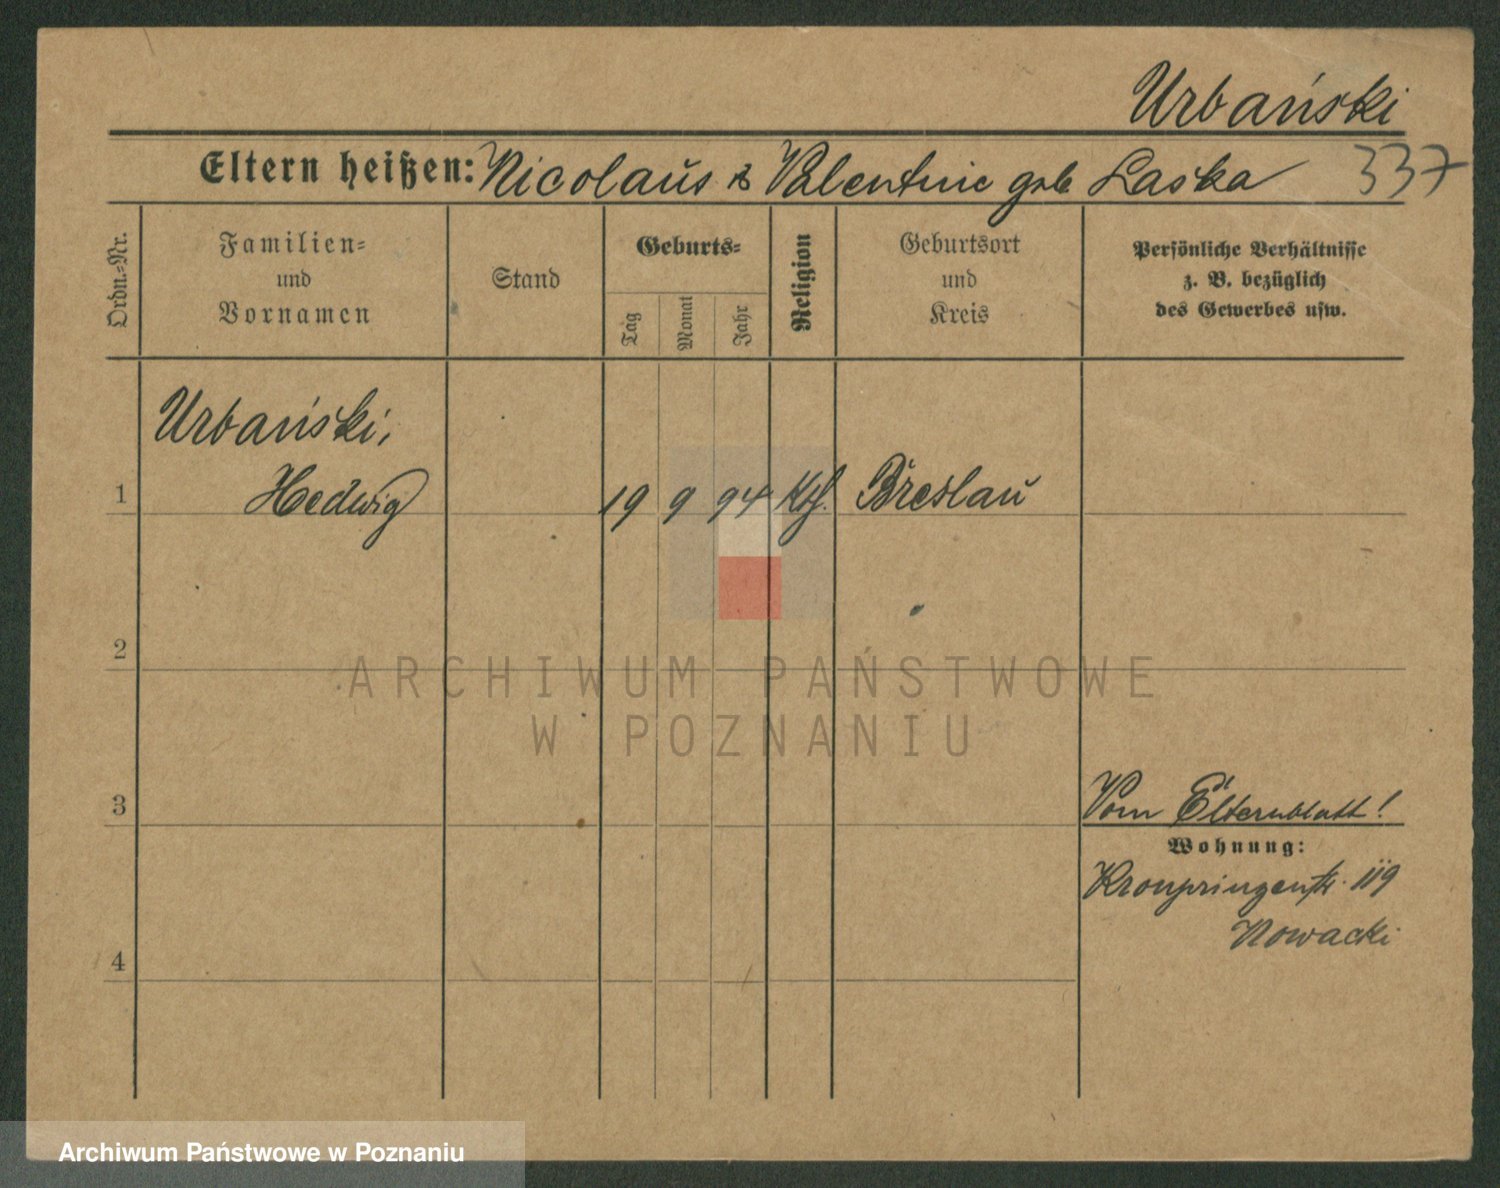 Urbański
Eltern heißen: Nicolaus & Valentine geb Laska 337
Ordn.-Nr.
Familien- und Vornamen
Stand
Geburts-
Tag
Monat
Jahr
Religion
Geburtsort und Kreis
Persönliche Verhältnisse
z. B. bezüglich
des Gewerbes usw.
Urbański,
1 Hedwig 19 9 94 Kth. Breslau
2
ARCHIWUM PAŃSTWOWE
W POZNANIU
3 Vom Elternblatt!
Wohnung:
Kronprinzenstr. 119
Nowacki
4
Archiwum Państwowe w Poznaniu